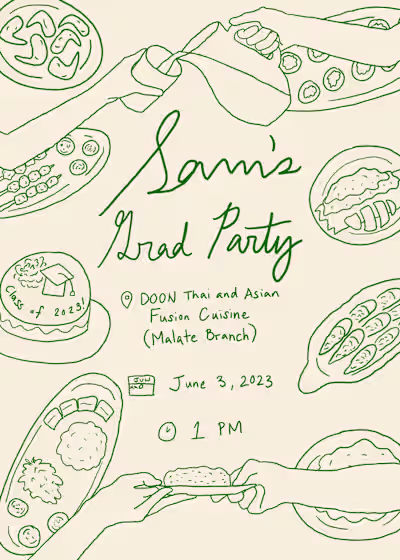 Sam's
Grad Party
DOON Thai and Asian
Fusion Cuisine
(Malate Branch)
Class of 2023!
JUN
June 3, 2023
1 PM